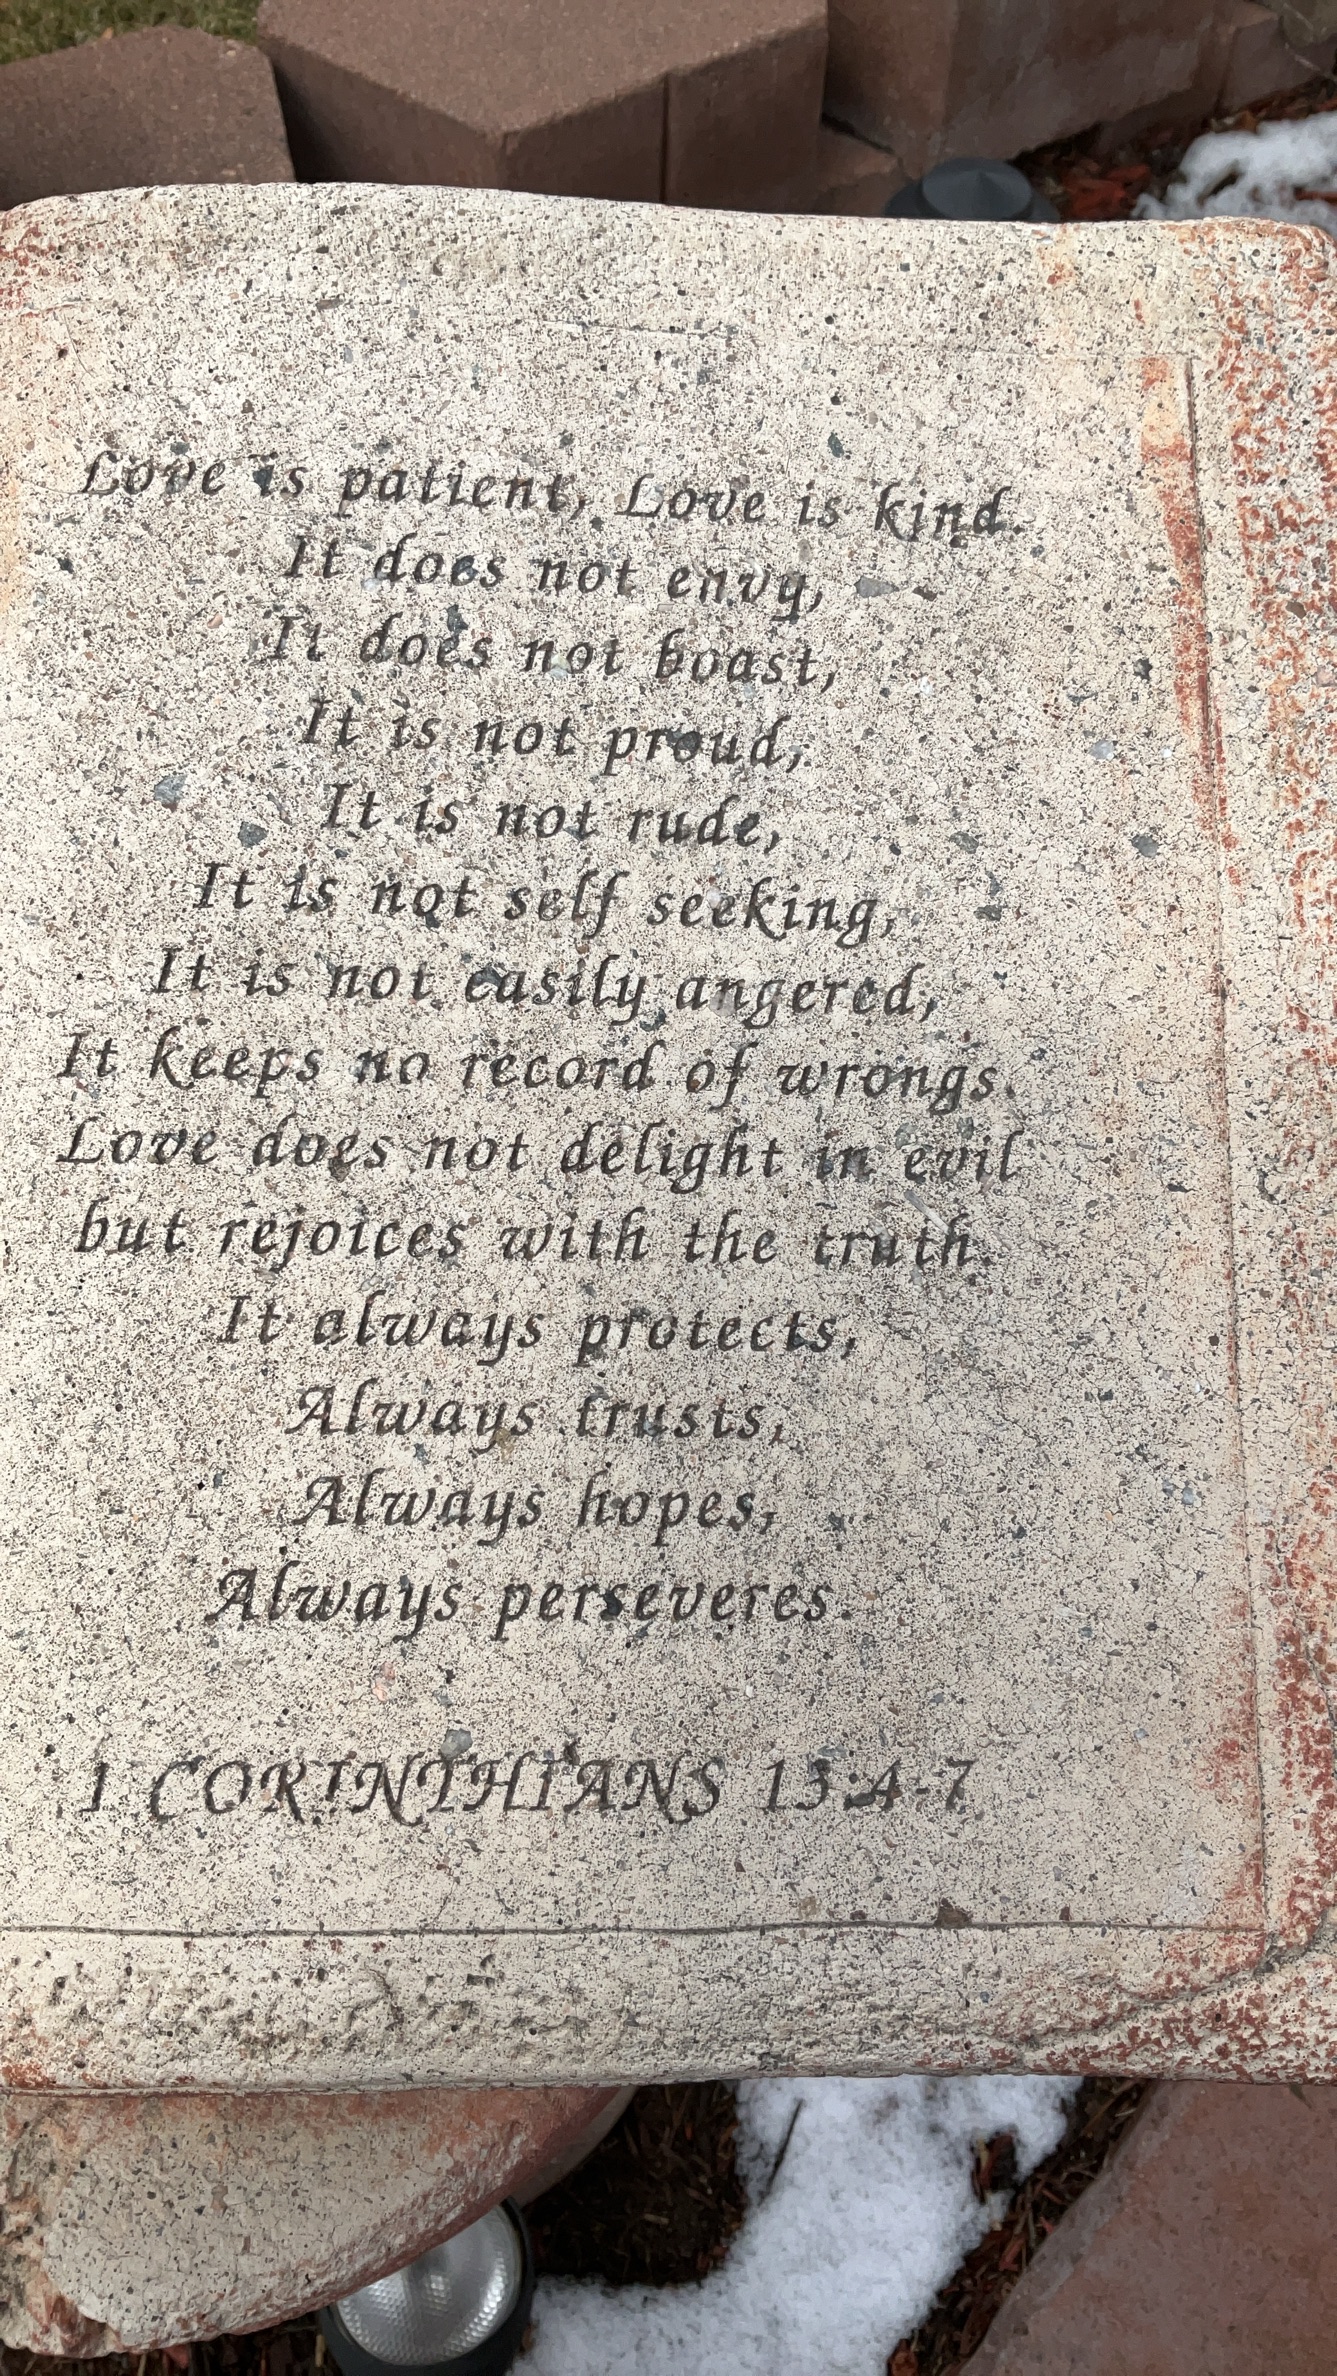 Love is patient, Love is kind.
It does not envy,
It does not boast,
It is not proud,
It is not rude,
It is not self seeking,
It is not easily angered,
It keeps no record of wrongs.
Love does not delight in evil
but rejoices with the truth.
It always protects,
Always trusts,
Always hopes,
Always perseveres.
1 CORINTHIANS 13:4-7